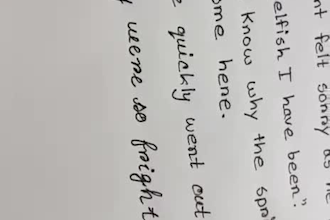 nt felt sorry as he
elfish I have been".
know why the spri
ome here.
e quickly went out
y were so fright